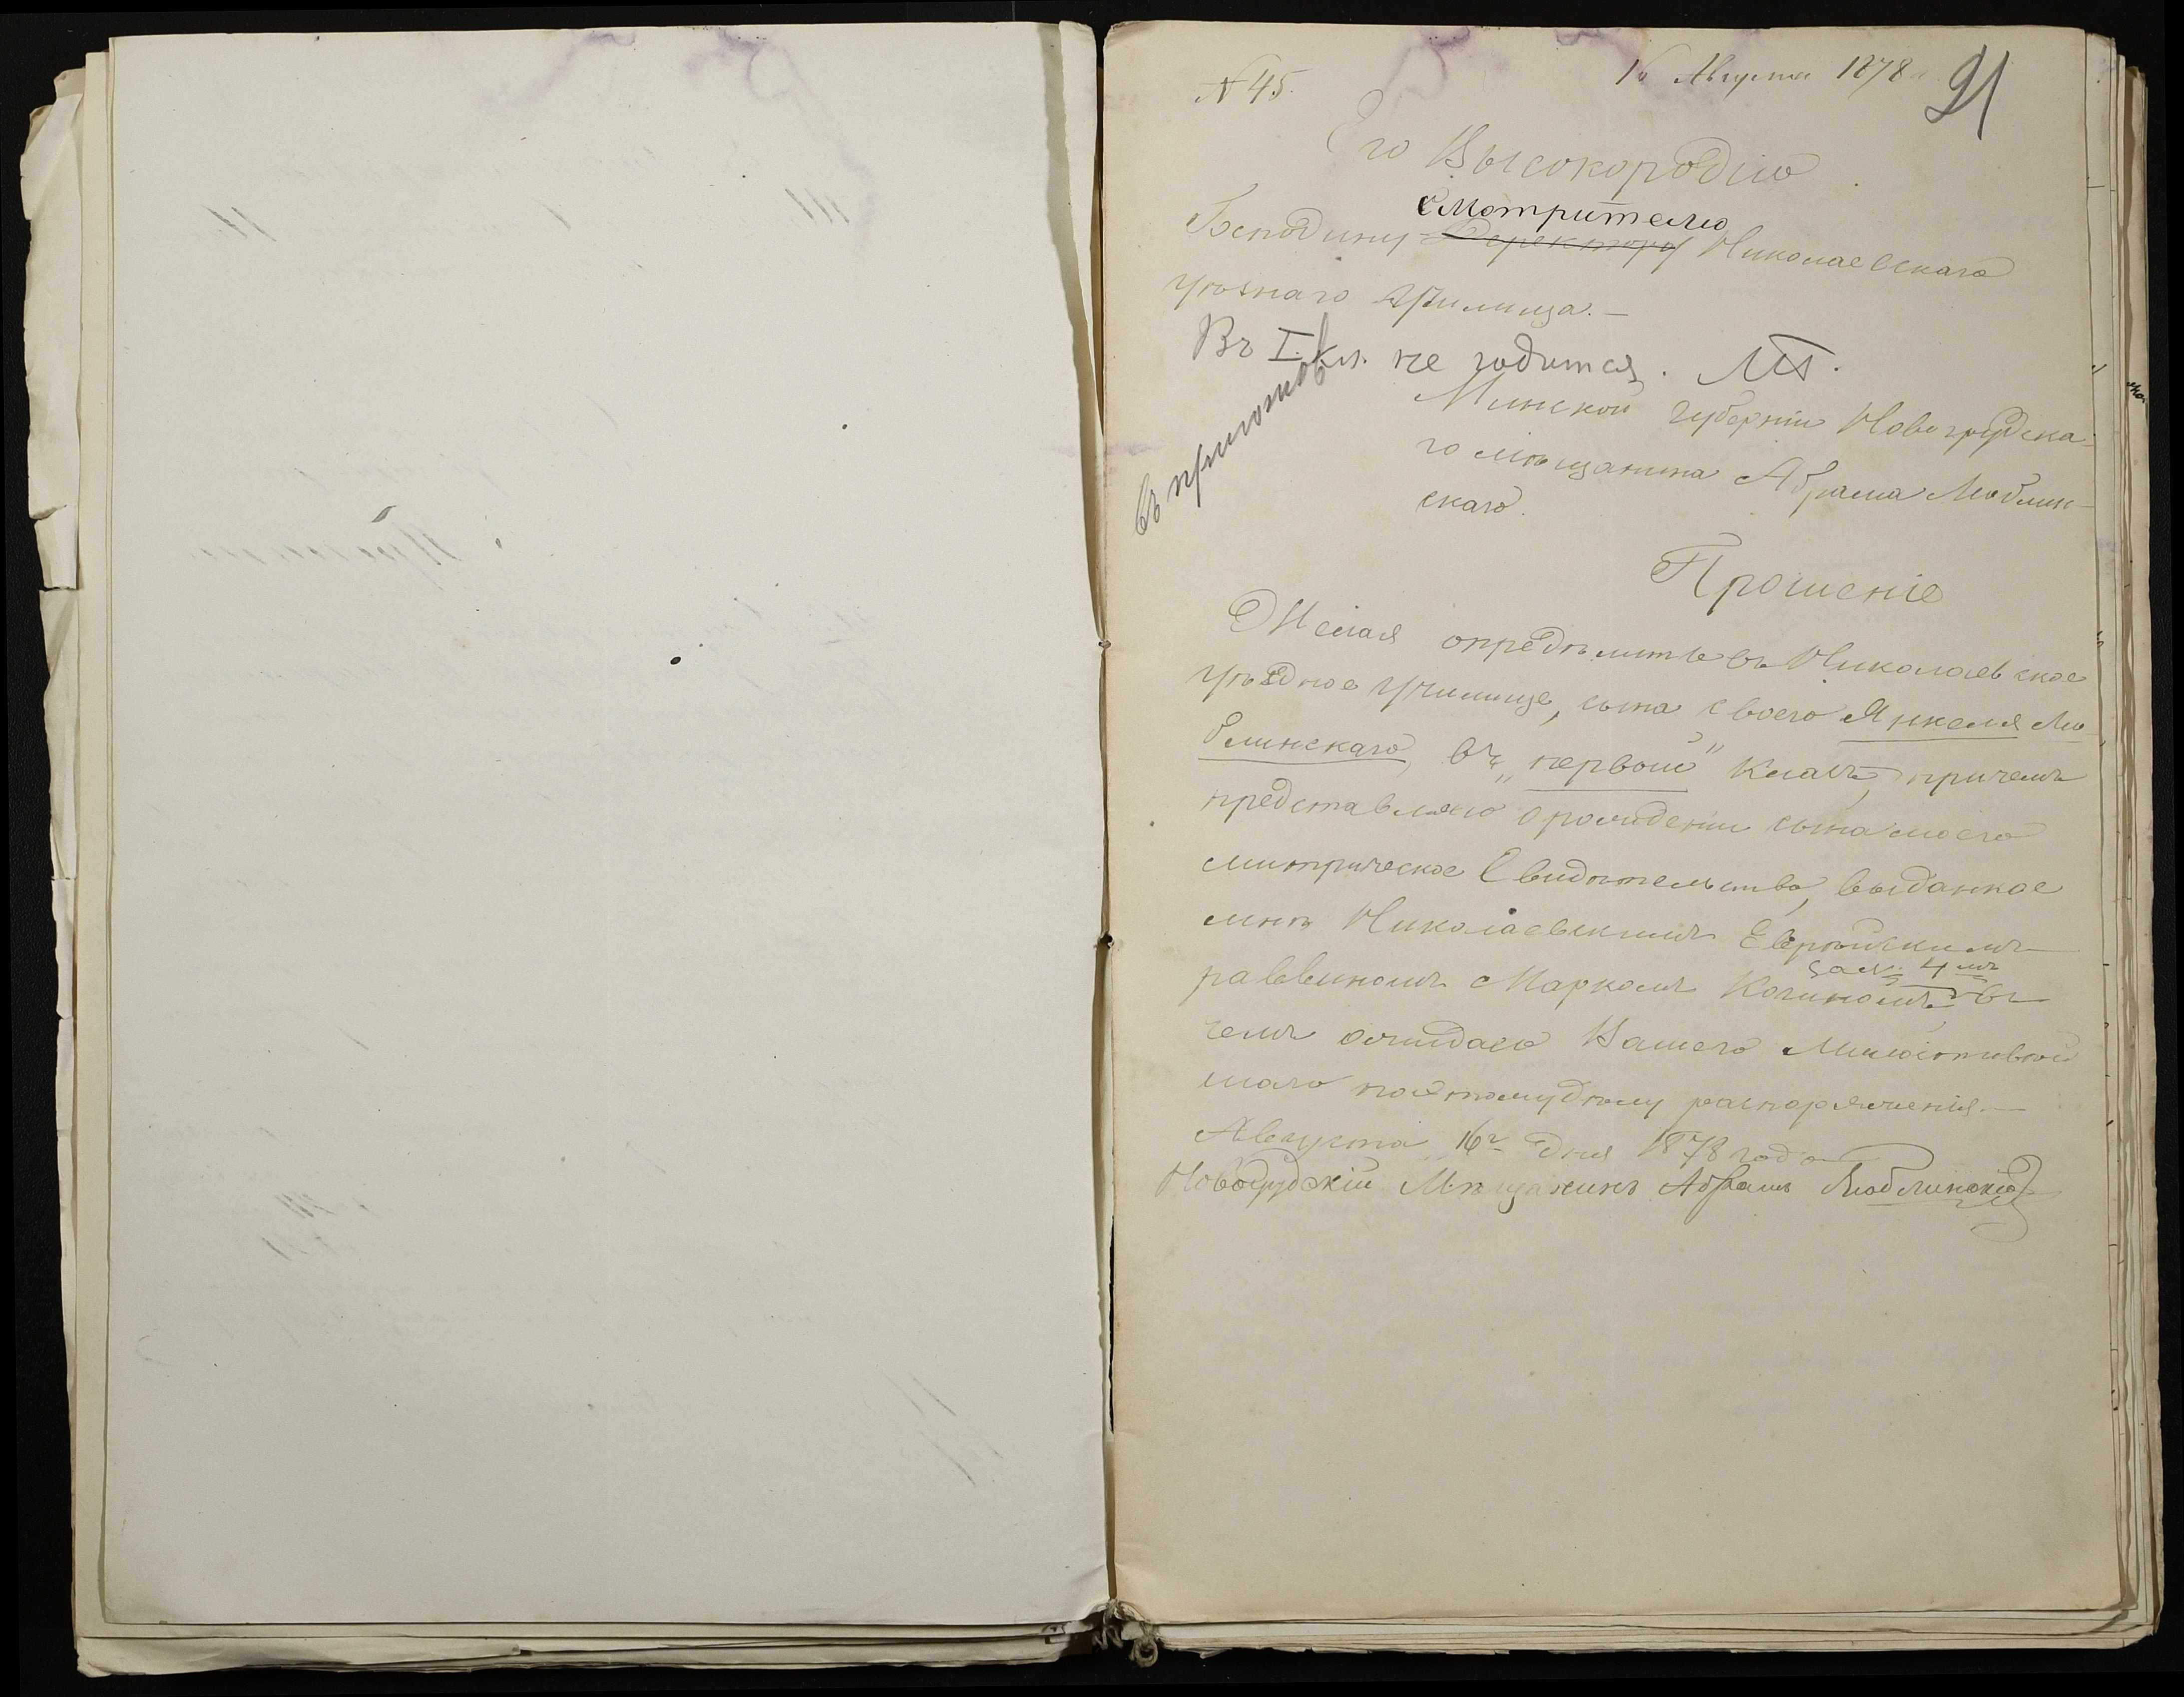 № 45.
16 Августа 1878 г.
91
Его Высокородію
Смотрителю
Господину Деректору Николаевскаго
уѣзнаго Училища. —
Въ I. кл. не годится.
въ пригото͏в
Минской Губерніи Новогрудска-
го мѣщанина Абрама Люблин-
скаго.
Прошеніе
Желая опредѣлить въ Николаевское
уѣздное училище, сына своего Янкеля Лю-
блинскаго, въ „первой" класъ, причемъ
представляю о рождении сына моего
митрическое Свидѣтельство, выданное
мнѣ Николаевскимъ Еврейскимъ
за № 4 мъ
раввиномъ Маркомъ въ
чемъ ожидаю Вашего Милостивой
шаго распоряжения. —
Августа 16го дня 1878 года
Новогрудскій Мѣщанинъ Абрамъ Люблинскій